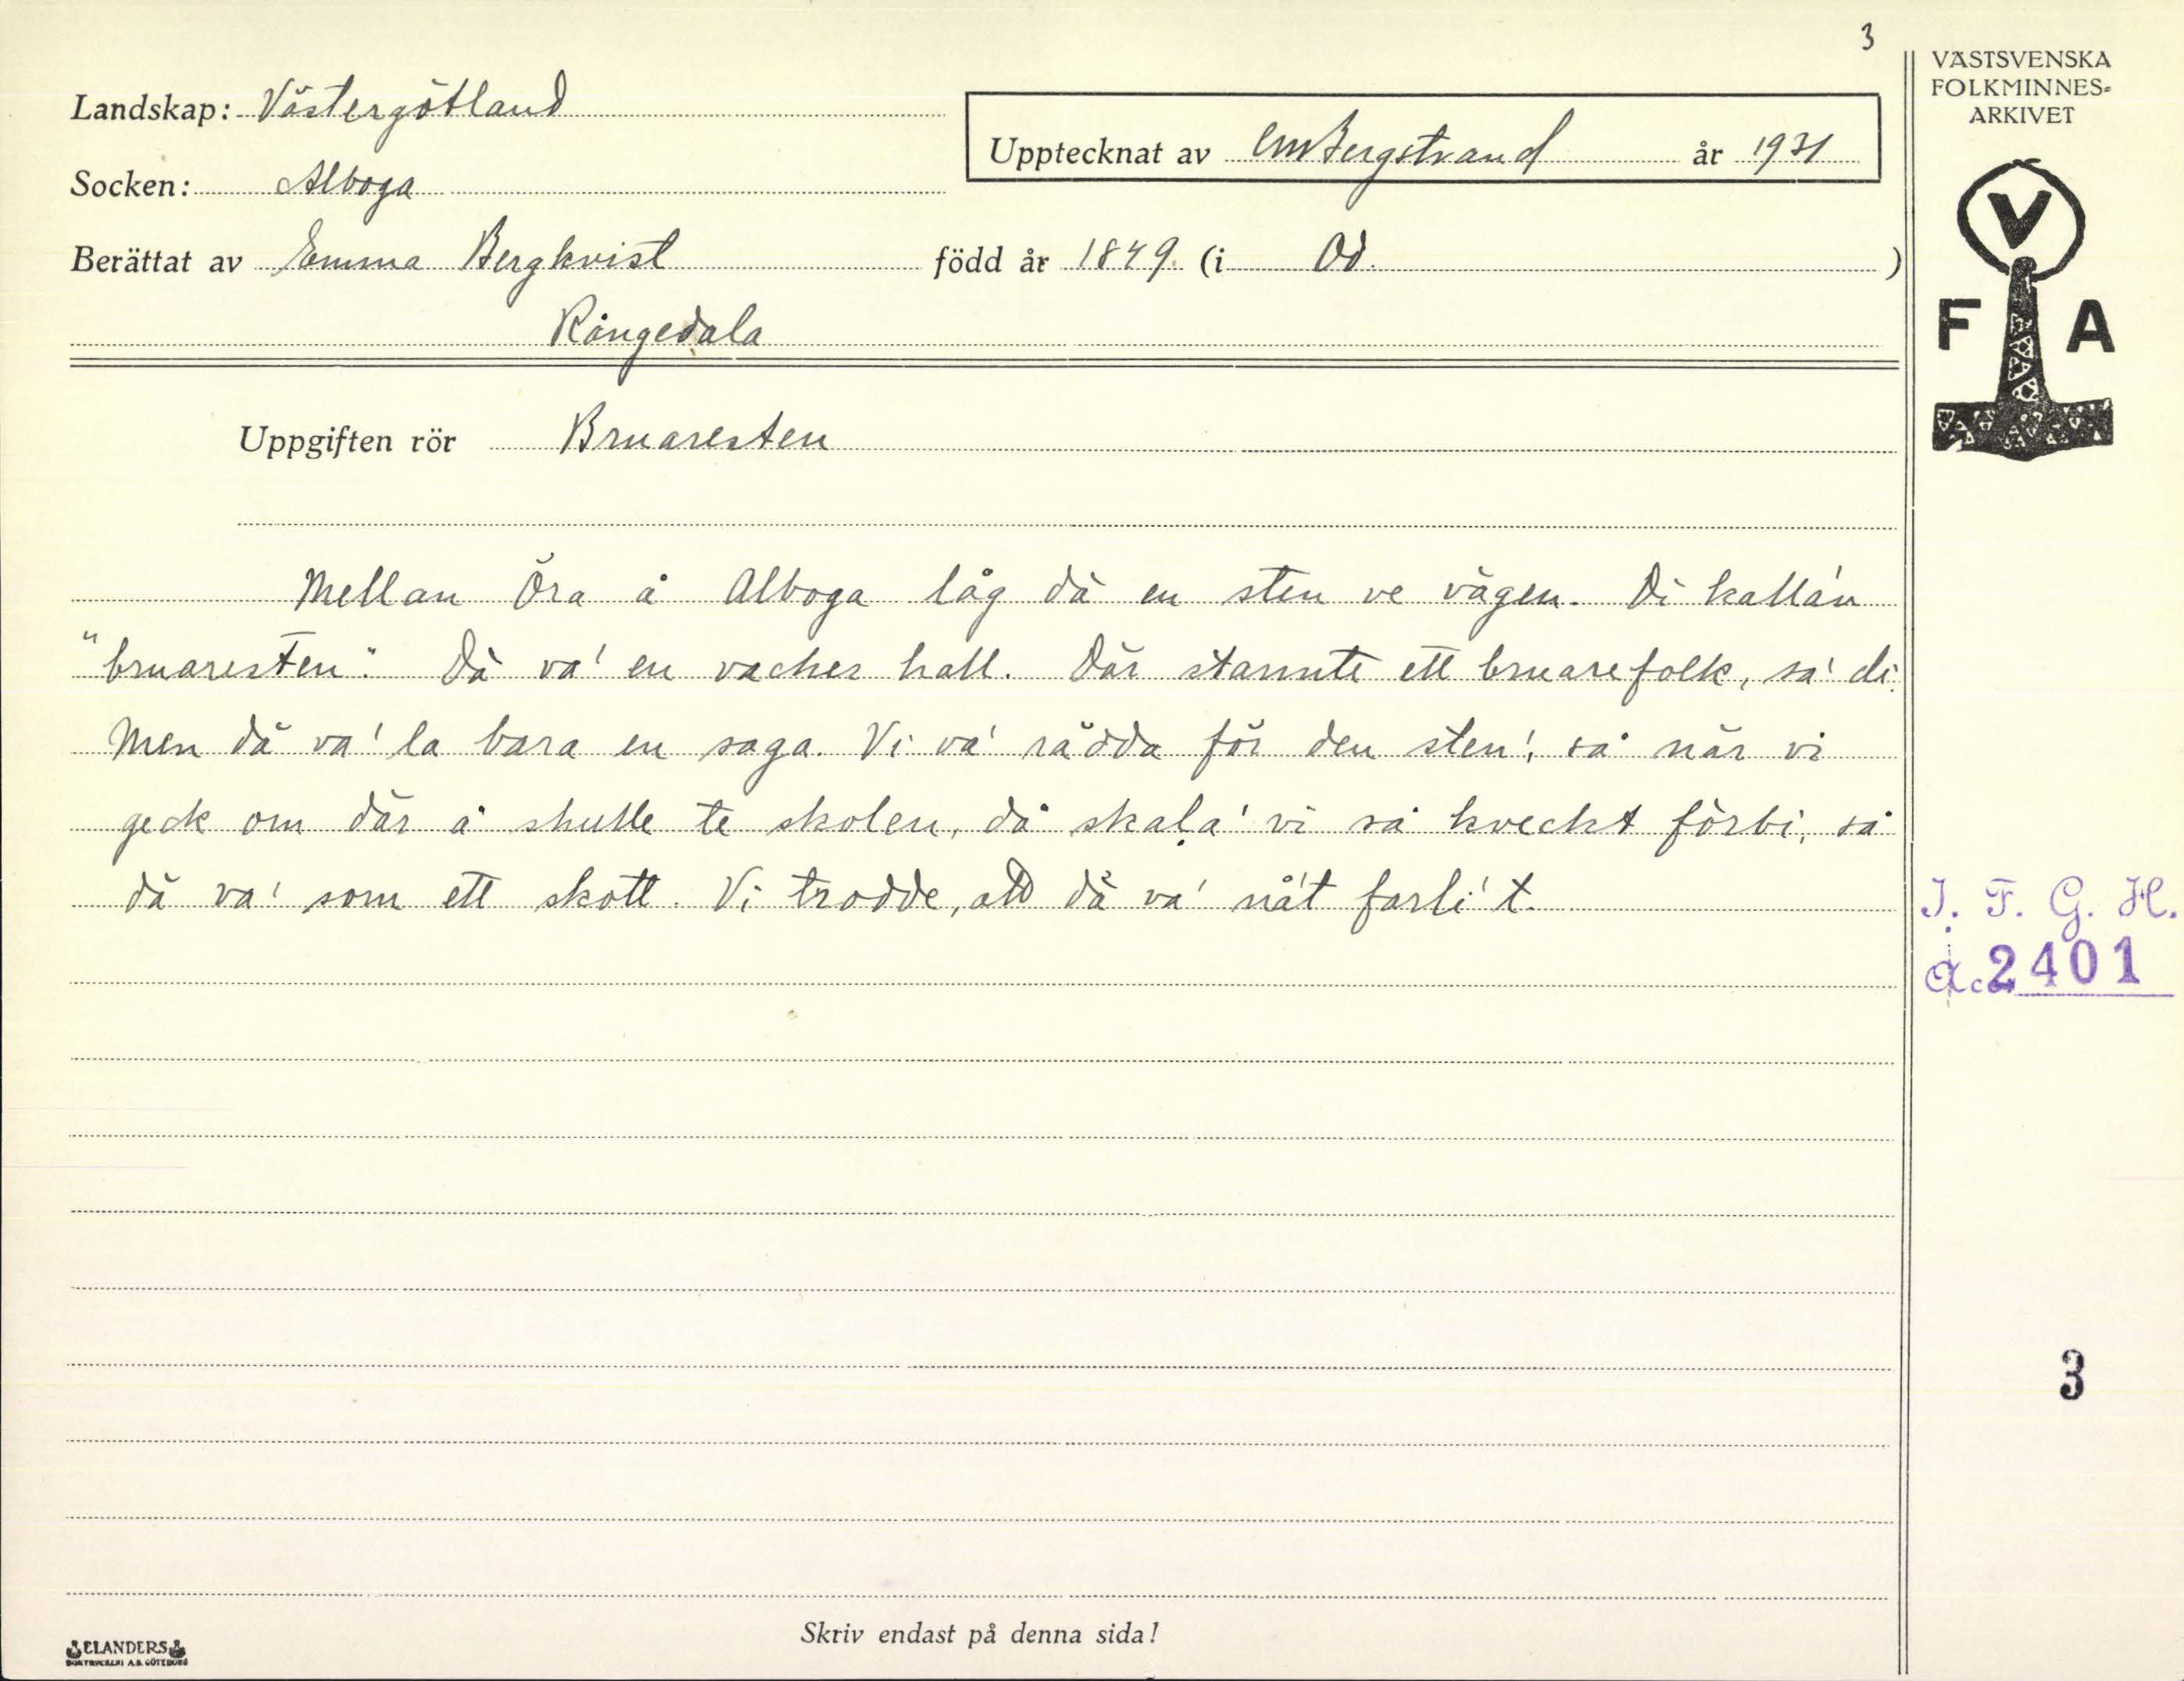 3
VÄSTSVENSKA
FOLKMINNES-
ARKIVET
Landskap: Västergötland
Upptecknat av CM Bergstrand år 1931
Socken: Alboga
Berättat av Emma Bergkvist född år 1849. (i Od. )
Rångedala
V
F A
Uppgiften rör Bruaresten
Mellan Öra å Alboga låg dä en sten ve vägen. Di kalla'n
"bruaresten". Dä va' en vacker hall. Där stannte ett bruarefolk, sa' di.
Men dä va' la bara en saga. Vi va' rädda för den sten', så när vi
geck om där å skulle te skolen, då skala' vi så kveckt förbi, så
dä va' som ett skott. Vi trodde, att dä va' nå't farli't.
I. F. G. H.
Acc. 2401
3
Skriv endast på denna sida!
ELANDERS
BOKTRYCKERI A.B. GÖTEBORG